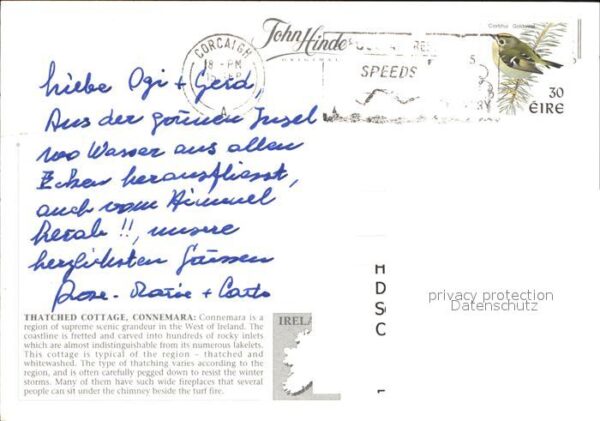 John Hinde
ORIGINAL
CORCAIGH
18 - PM
SPEEDS
Goldcrest
30
ÉIRE
Liebe Ogi + Gerd,
Aus der grünen Insel
wo Wasser aus allen
Ecken herausfliesst,
auch vom Himmel
herab !!, unsere
herzlichsten Grüssen
Rose-Marie + Carlo
THATCHED COTTAGE, CONNEMARA: Connemara is a
region of supreme scenic grandeur in the West of Ireland. The
coastline is fretted and carved into hundreds of rocky inlets
which are almost indistinguishable from its numerous lakelets.
This cottage is typical of the region - thatched and
whitewashed. The type of thatching varies according to the
region, and is often carefully pegged down to resist the winter
storms. Many of them have such wide fireplaces that several
people can sit under the chimney beside the turf fire.
IREL
H
D
S
C
privacy protection
Datenschutz